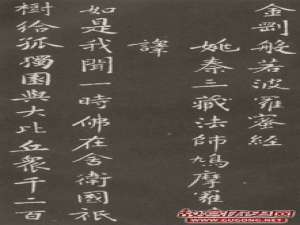 金剛般若波羅蜜經
姚秦三藏法師鳩摩羅
譯
如是我聞一時佛在舍衛國祇
樹給孤獨園與大比丘衆千二百
WWW.GUGONG.NET